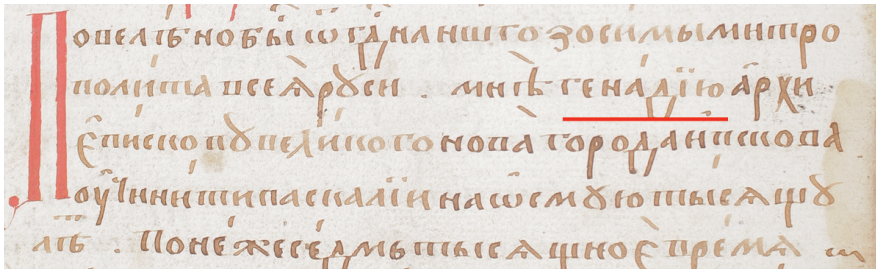 Повелѣно бы ѿ гдна ншго зосимы митро
полита всеѧ рꙋси . мнѣ генадїю архи
епископꙋ великого нова города и пскова
оучинити пасхалїи на ѡсмꙋю тысѧщꙋ
лѣ . Понеже седмь тысѧщное времѧ